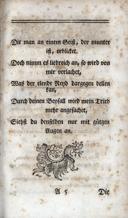 Die man an einem Geist, der munter
ist, erblicket.
Doch nimm es liebreich an, so wird von
mir verlachet,
Was der elende Neyd dargegen bellen
kan,
Durch deinen Beyfall wird mein Trieb
mehr angefachet,
Siehst du denselben nur mit gütgen
Augen an.
A 5
Die